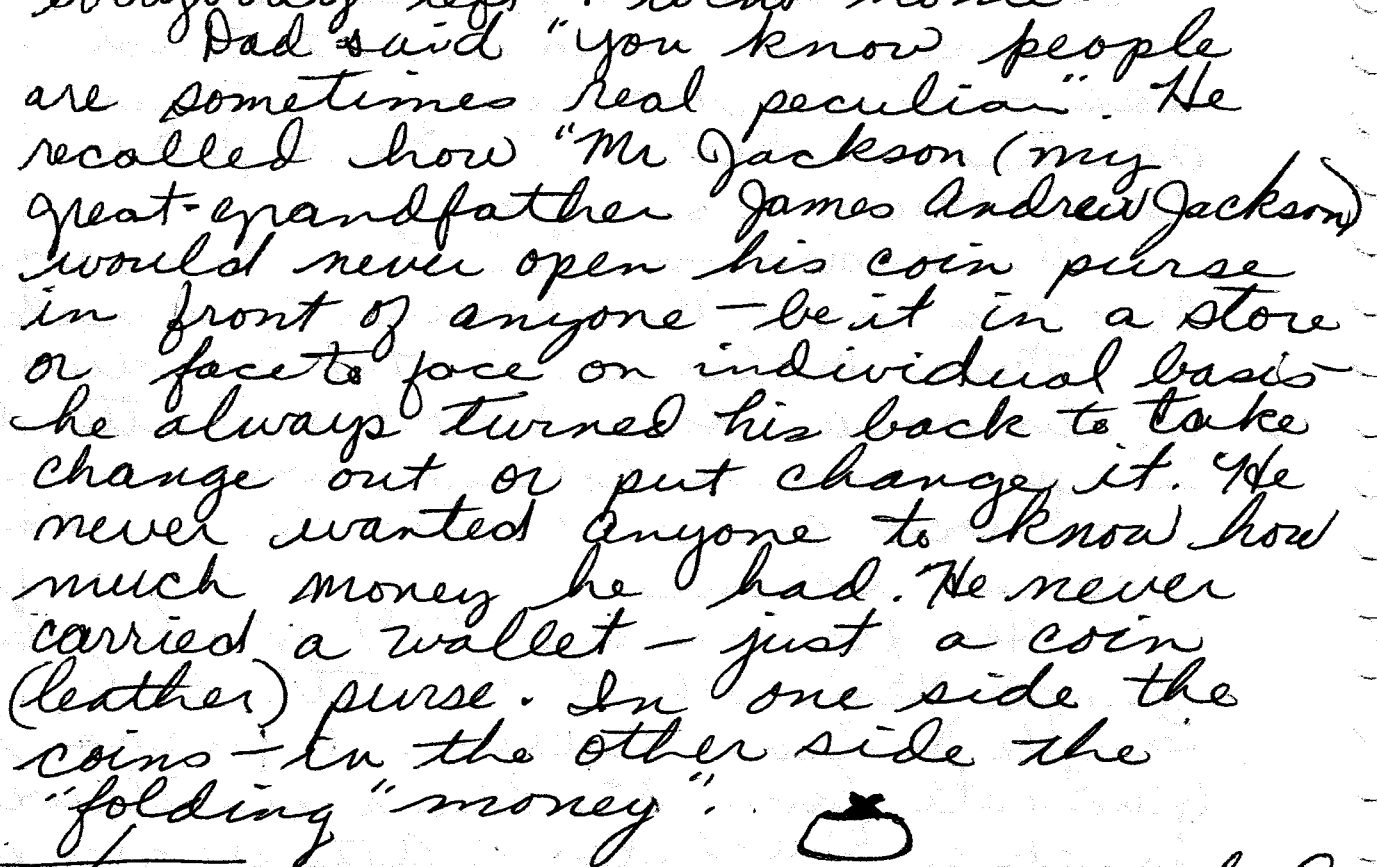 Dad said "you know people
are sometimes real peculiar". He
recalled how "Mr Jackson (my
great-grandfather James Andrew Jackson)
would never open his coin purse
in front of anyone - be it in a store
or face to face on individual basis
he always turned his back to take
change out or put change it. "He
never wanted anyone to know how
much money he had. "He never
carried a wallet - just a coin
(leather) purse. In one side the
coins - in the other side the
"folding" money".